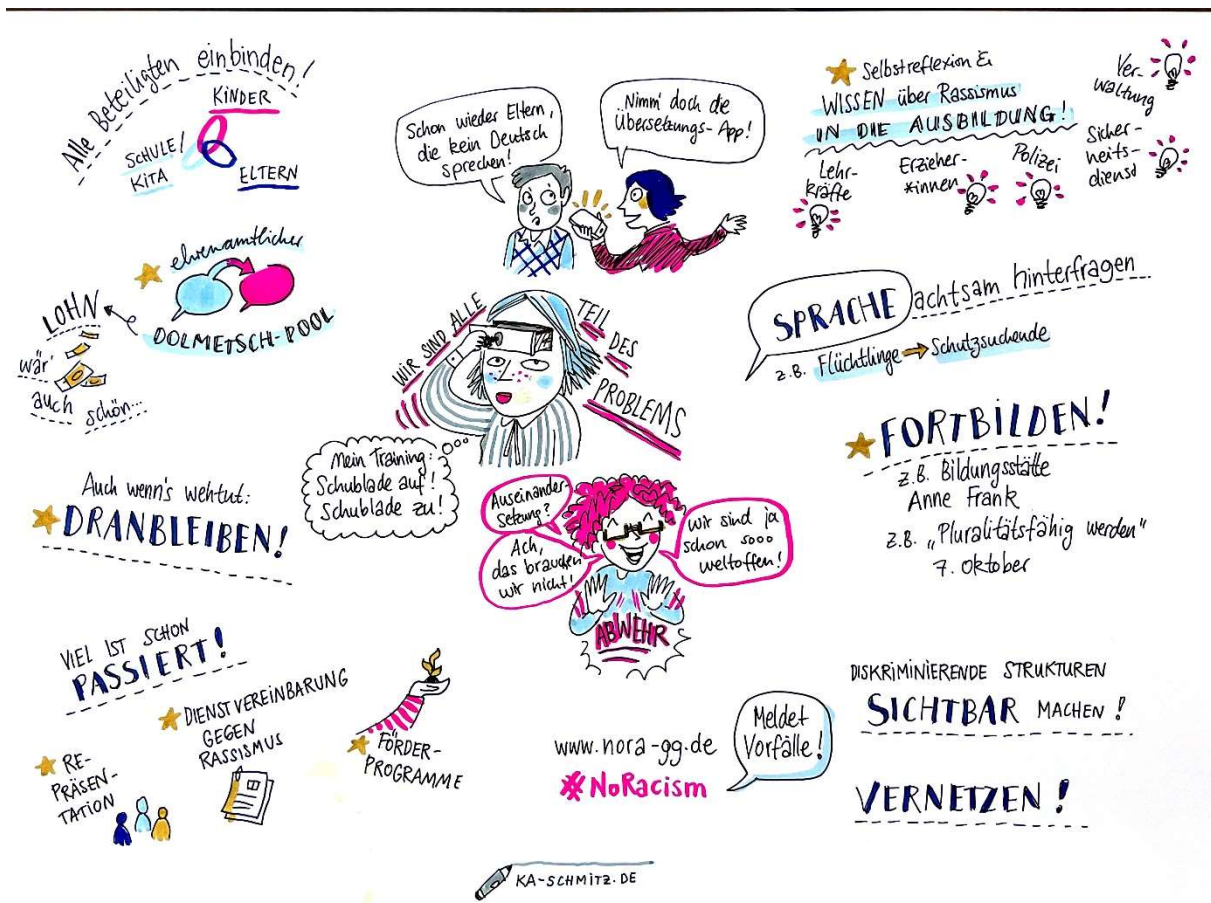 Alle Beteiligten einbinden!
KINDER
SCHULE/
KITA
ELTERN
ehrenamtlicher
DOLMETSCH-POOL
LOHN
wär'
auch schön...
Auch wenn's wehtut:
DRANBLEIBEN!
VIEL IST SCHON
PASSIERT!
RE-
PRÄSEN-
TATION
DIENSTVEREINBARUNG
GEGEN
RASSISMUS
FÖRDER-
PROGRAMME
Schon wieder Eltern,
die kein Deutsch
sprechen!
Nimm' doch die
Übersetzungs-App!
WIR SIND ALLE
TEIL DES
PROBLEMS
Mein Training:
Schublade auf!
Schublade zu!
Auseinander-
setzung?
Ach,
das brauchen
wir nicht!
Wir sind ja
schon sooo
weltoffen!
ABWEHR
www.nora-gg.de
#NoRacism
Meldet
Vorfälle!
KA-SCHMITZ.DE
Selbstreflexion &
WISSEN über Rassismus
IN DIE AUSBILDUNG!
Lehr-
kräfte
Erzieher-
*innen
Polizei
Sicher-
heits-
dienst
Ver-
waltung
SPRACHE achtsam hinterfragen
z.B. Flüchtlinge → Schutzsuchende
FORTBILDEN!
z.B. Bildungsstätte
Anne Frank
z.B. „Pluralitätsfähig werden"
7. Oktober
DISKRIMINIERENDE STRUKTUREN
SICHTBAR MACHEN!
VERNETZEN!